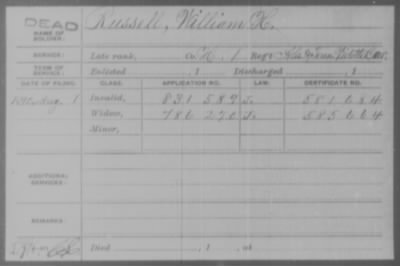 DEAD Russell, William H.
NAME OF SOLDIER:
SERVICE: Late rank, Co. H, 1 Reg't
TERM OF SERVICE: Enlisted , 1 Discharged , 1
DATE OF FILING. CLASS. APPLICATION NO. LAW. CERTIFICATE NO.
Aug. 1 Invalid, 831 589
Widow, 786 270 585 664
Minor,
ADDITIONAL SERVICES:
REMARKS:
Died , 1 , at